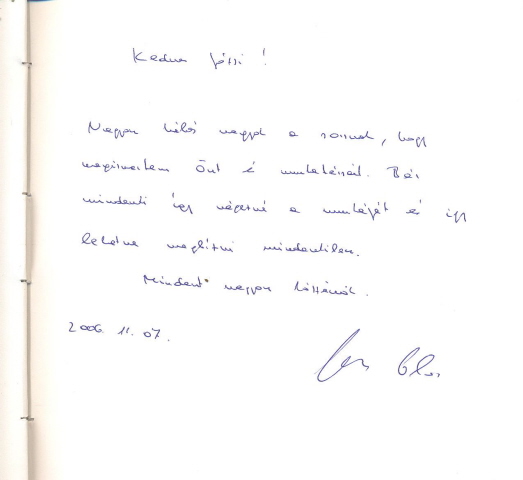 Kedves Jóssi!
Nagyon hálás vagyok a sorsnak, hogy
megismertem Önt és munkatársait. Bár
mindenki így végezné a munkáját és így
lehetne meglátni mindenkiben.
Mindent nagyon köszönök.
2006. 11. 07.